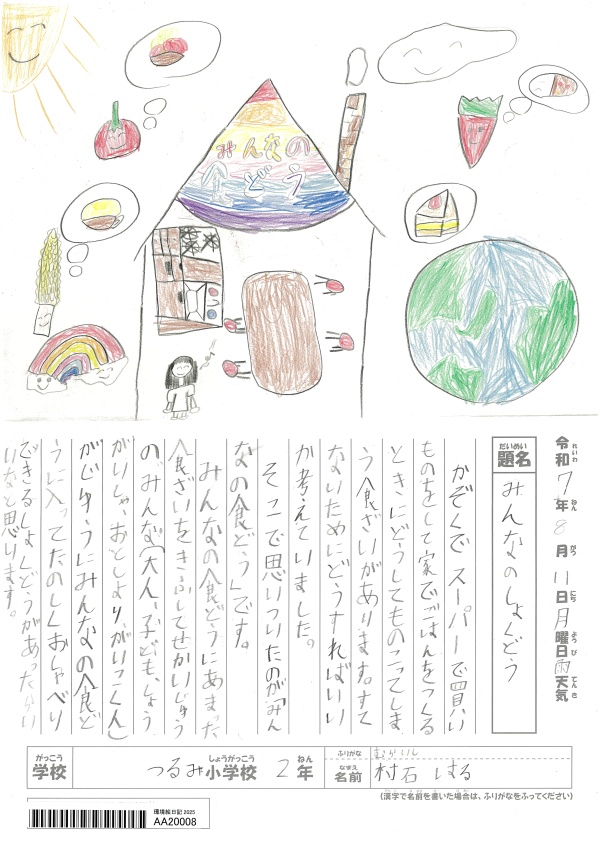 みんなの
食どう
令和7年8月11日月曜日雨天気
れいわ ねん がつ にち ようび てんき
だいめい
題名
みんなのしょくどう
かぞくでスーパーで買いい
ものをして家でごはんをつくる
ときにどうしてものこってしま
う食ざいがあります。すて
ないためにどうすればいい
か考えていました。
そこで思いついたのが「みん
なの食どう」です。
みんなの食どうにあまった
食ざいをきふしてせかいじゅう
のみんな(大人、子ども、しょう
がいしゃ、おとしより、がいこく人)
がじゆうにみんなの食ど
うに入ってたのしくおしゃべり
できるしょくどうがあったらい
いなと思います。
がっこう
学校
つるみ小学校 2年
しょうがっこう ねん
ふりがな むらいし
なまえ
名前 村石 はる
(漢字で名前を書いた場合は、ふりがなをふってください)
環境絵日記 2025
AA20008